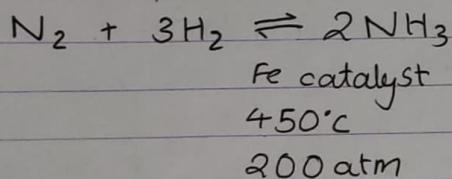 N₂ + 3H₂ ⇌ 2NH₃
Fe catalyst
450°C
200 atm